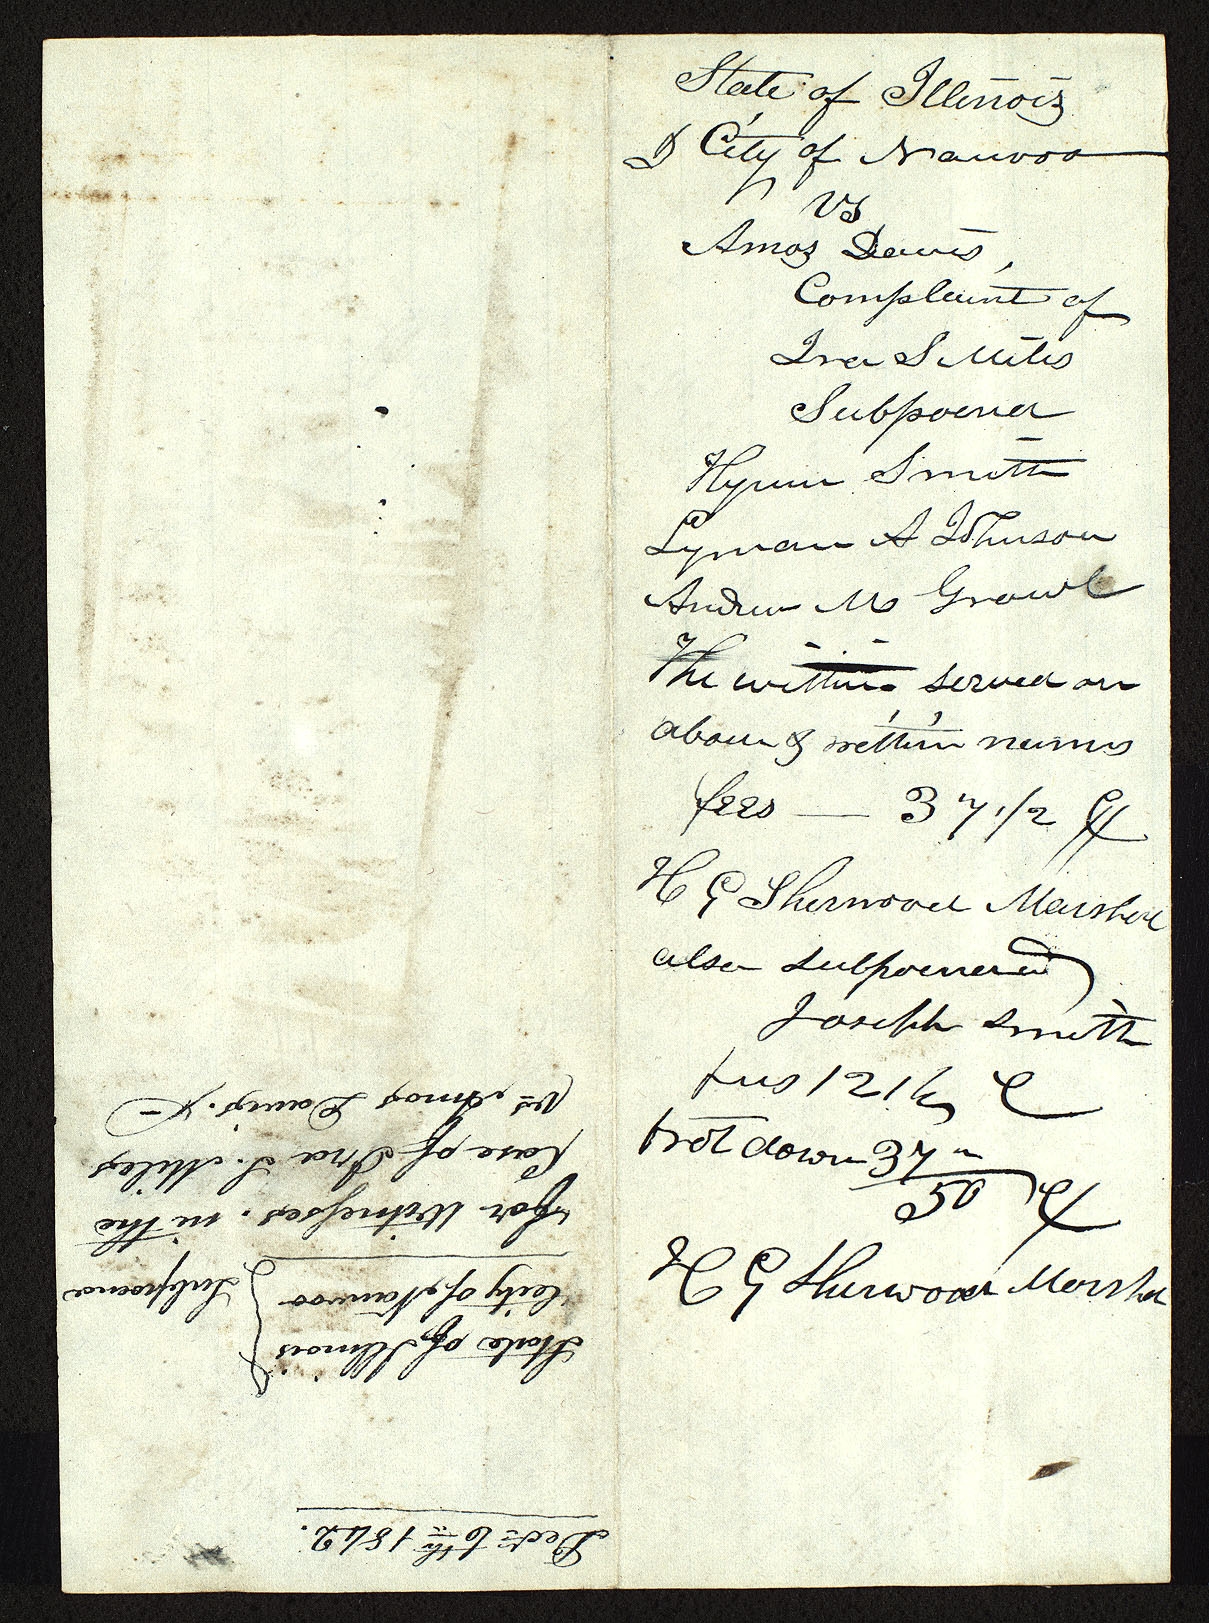 State of Illinois
City of Nauvoo
vs
Amos Davis,
Complaint of
Ira S Miles
Subpoena
Hyrum Smith
Lyman A Johnson
Andrew M Growl
The within served on
above & within names
fees — 37 1/2 
H G Sherwood Marshal
also subpoenaed
Joseph Smith
fees 12 1/2 C
trot down 37 "
50
H G Sherwood Marshal
Dec= 6th 1842.
State of Illinois
City of Nauvoo } Subpoena
for Witnesses. in the
Case of Ira S. Miles
vs Amos Davis.